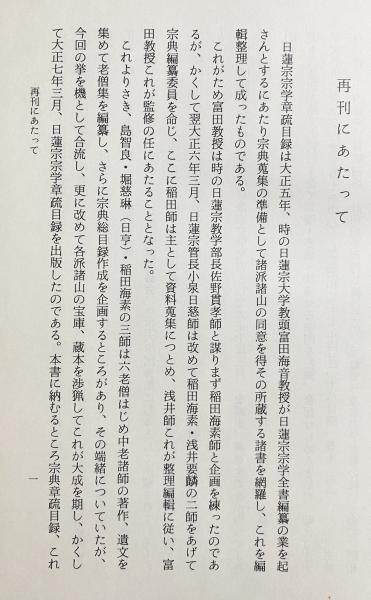 再刊にあたって
日蓮宗宗学章疏目録は大正五年、時の日蓮宗大学教頭富田海音教授が日蓮宗宗学全書編纂の業を起
さんとするにあたり宗典蒐集の準備として諸派諸山の同意を得その所蔵する諸書を網羅し、これを編
輯整理して成ったものである。
これがため富田教授は時の日蓮宗教学部長佐野貫孝師と謀りまず稲田海素師と企画を練ったのであ
るが、かくして翌大正六年三月、日蓮宗管長小泉日慈師は改めて稲田海素・浅井要麟の二師をあげて
宗典編纂委員を命じ、ここに稲田師は主として資料蒐集につとめ、浅井師これが整理編輯に従い、富
田教授これが監修の任にあたることとなった。
これよりさき、島智良・堀慈琳（日亨）・稲田海素の三師は六老僧はじめ中老諸師の著作、遺文を
集めて老僧集を編纂し、さらに宗典総目録作成を企画するところがあり、その端緒についていたが、
今回の挙を機として合流し、更に改めて各派諸山の宝庫、蔵本を渉猟してこれが大成を期し、かくし
て大正七年三月、日蓮宗宗学章疏目録を出版したのである。本書に納むるところ宗典章疏目録、これ
再刊にあたって
一